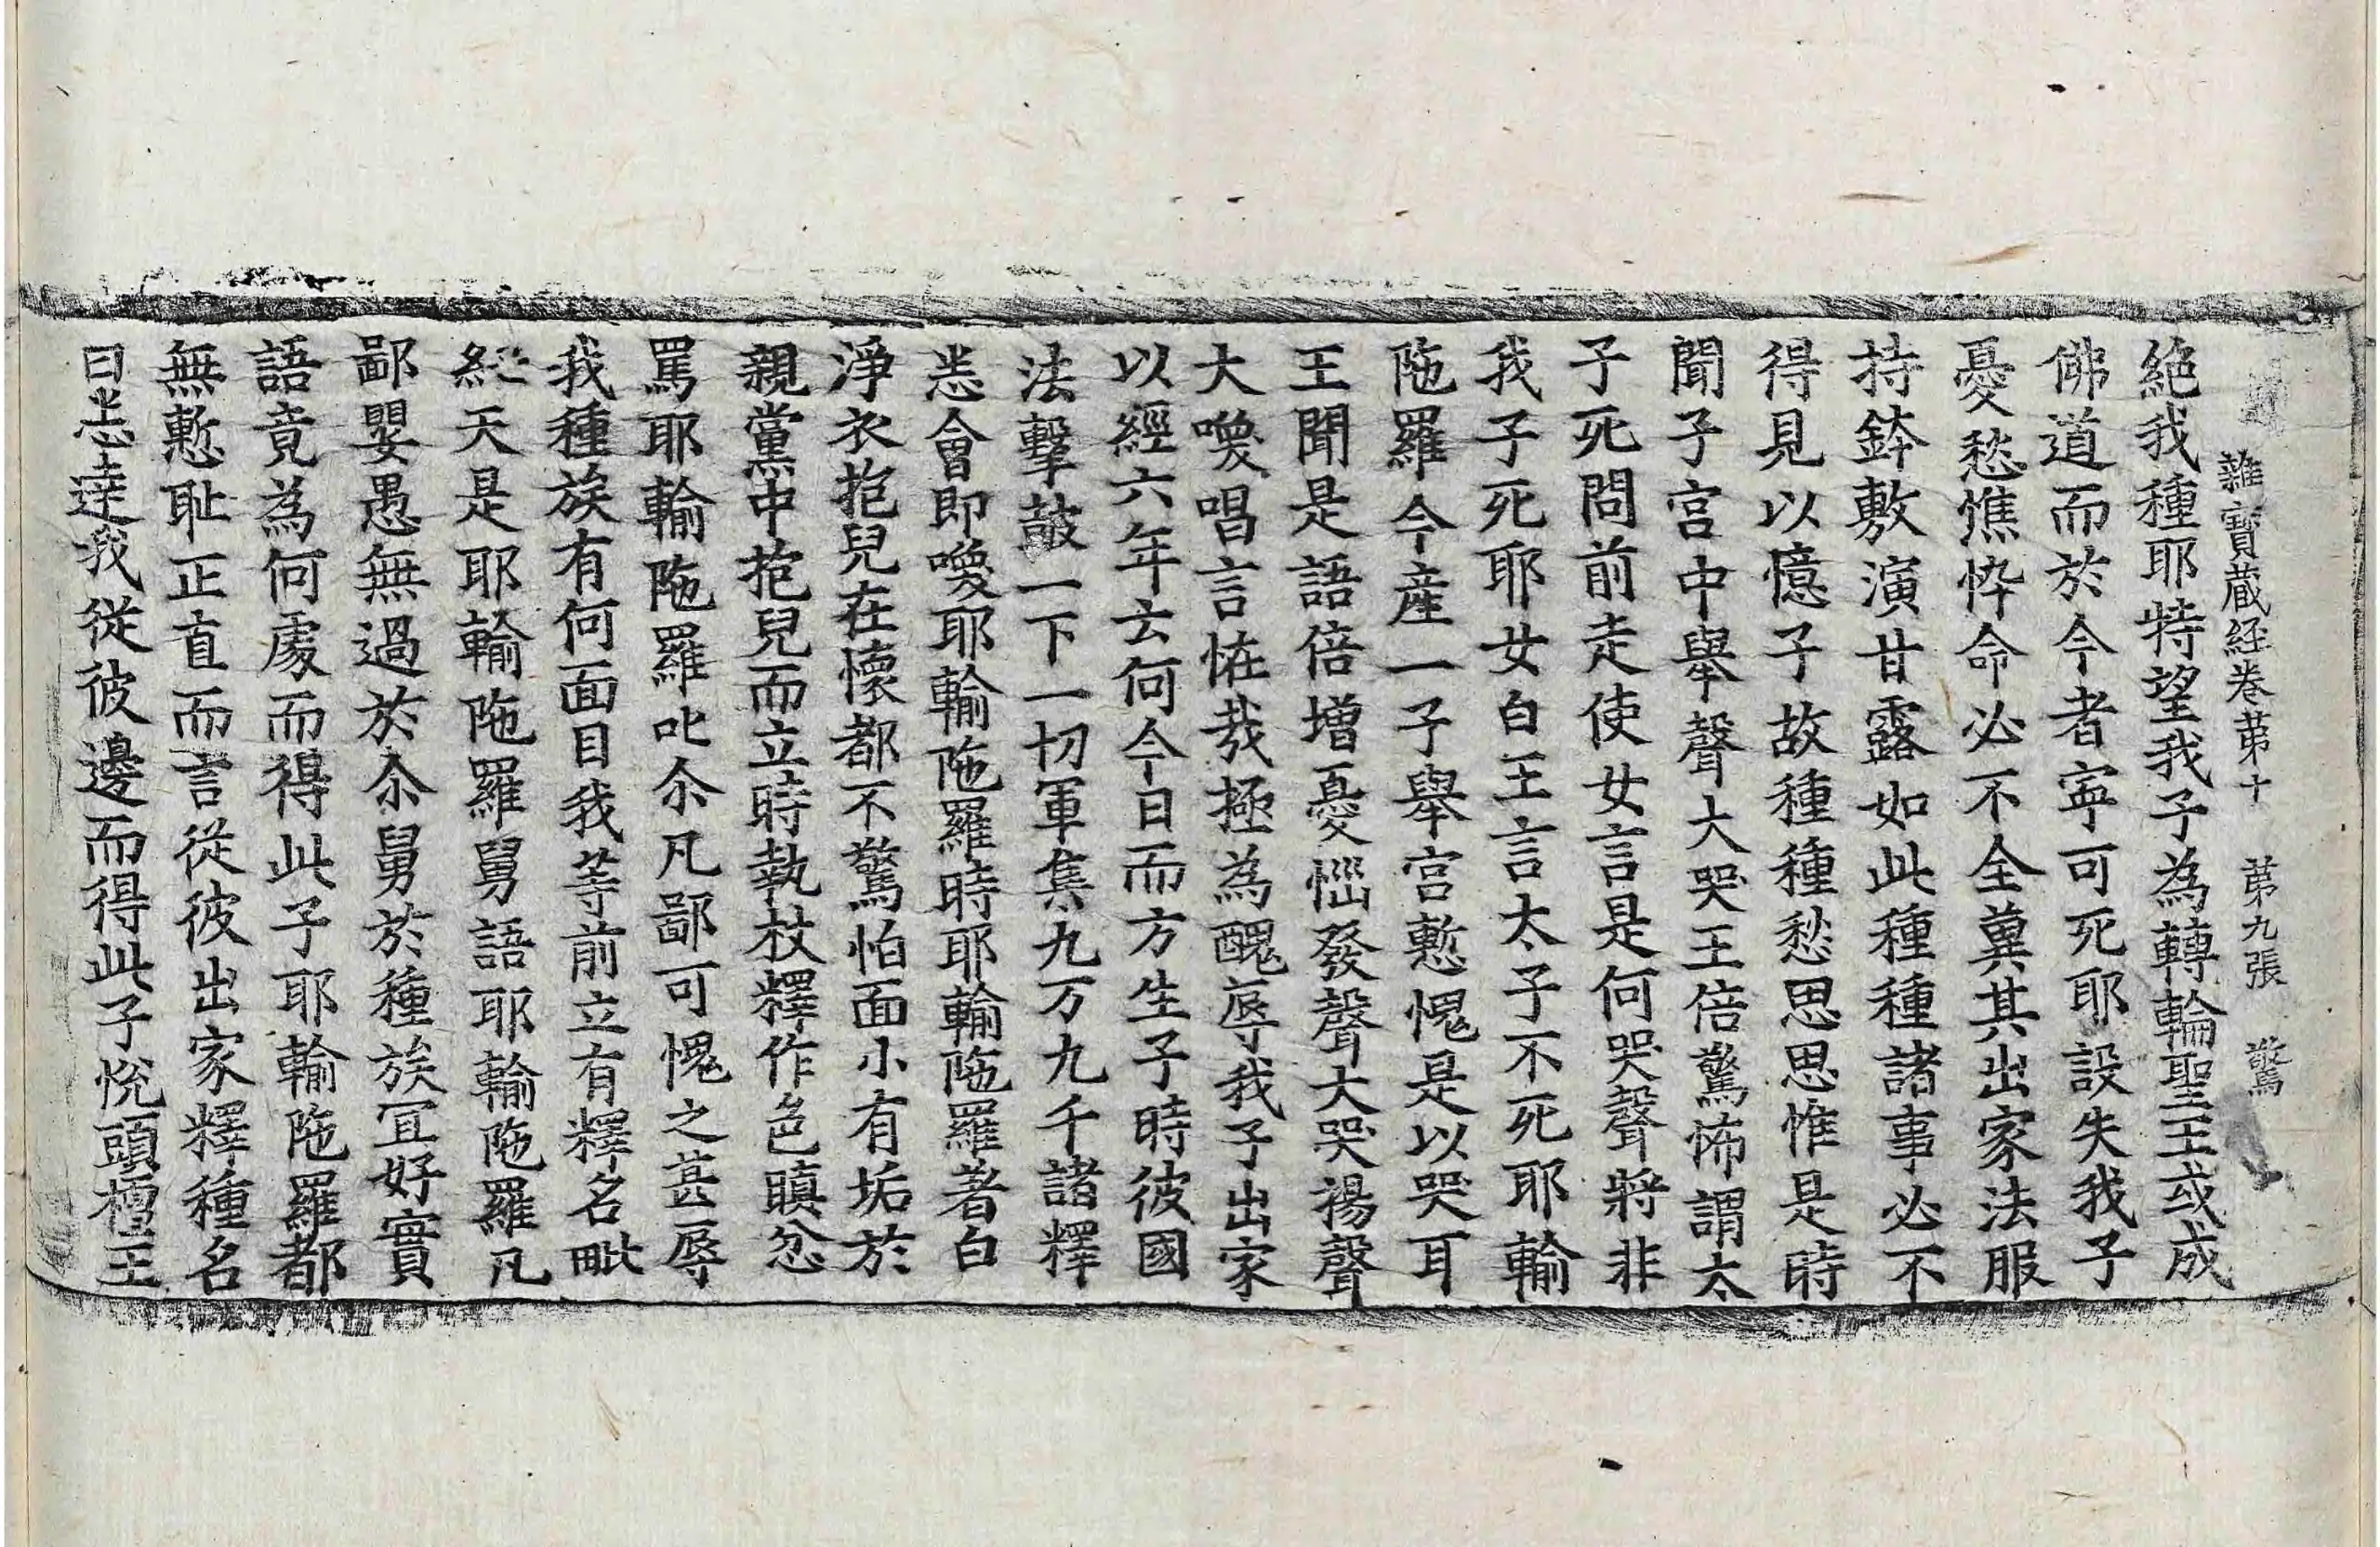 雜寶蔵経卷苐十 苐九張 驚
絶我種耶特望我子為轉輪聖王或成
佛道而於今者寧可死耶設失我子
憂愁憔悴命必不全兾其出家法服
持鉢敷演甘露如此種種諸事必不
得見以憶子故種種愁思思惟是時
聞子宮中舉聲大哭王倍驚怖謂太
子死問前走使女言是何哭聲將非
我子死耶女白王言太子不死耶輸
陁羅今産一子舉宮慙愧是以哭耳
王聞是語倍増憂惱發聲大哭揚聲
大喚唱言恠哉極為醜辱我子出家
以經六年云何今日而方生子時彼國
法擊皷一下一切軍集九万九千諸釋
悉會即喚耶輸陁羅時耶輸陁羅著白
淨衣抱兒在懷都不驚怕面小有垢於
親黨中抱兒而立時執杖釋作色瞋忿
罵耶輸陁羅叱尒凡鄙可愧之甚辱
我種族有何面目我等前立有釋名毗
紐天是耶輸陁羅舅語耶輸陁羅凡
鄙嬰愚無過於尒舅於種族冝好實
語竟為何處而得此子耶輸陁羅都
無慙耻正直而言從彼出家釋種名
曰悉達我從彼邊而得此子恱頭檀王